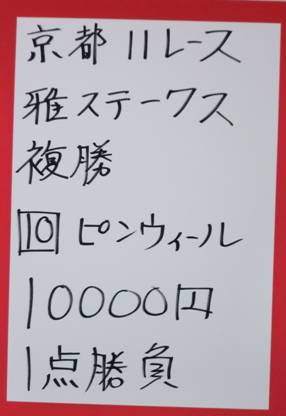 京都11レース
雅ステークス
複勝
10 ピンウィール
10000円
1点勝負